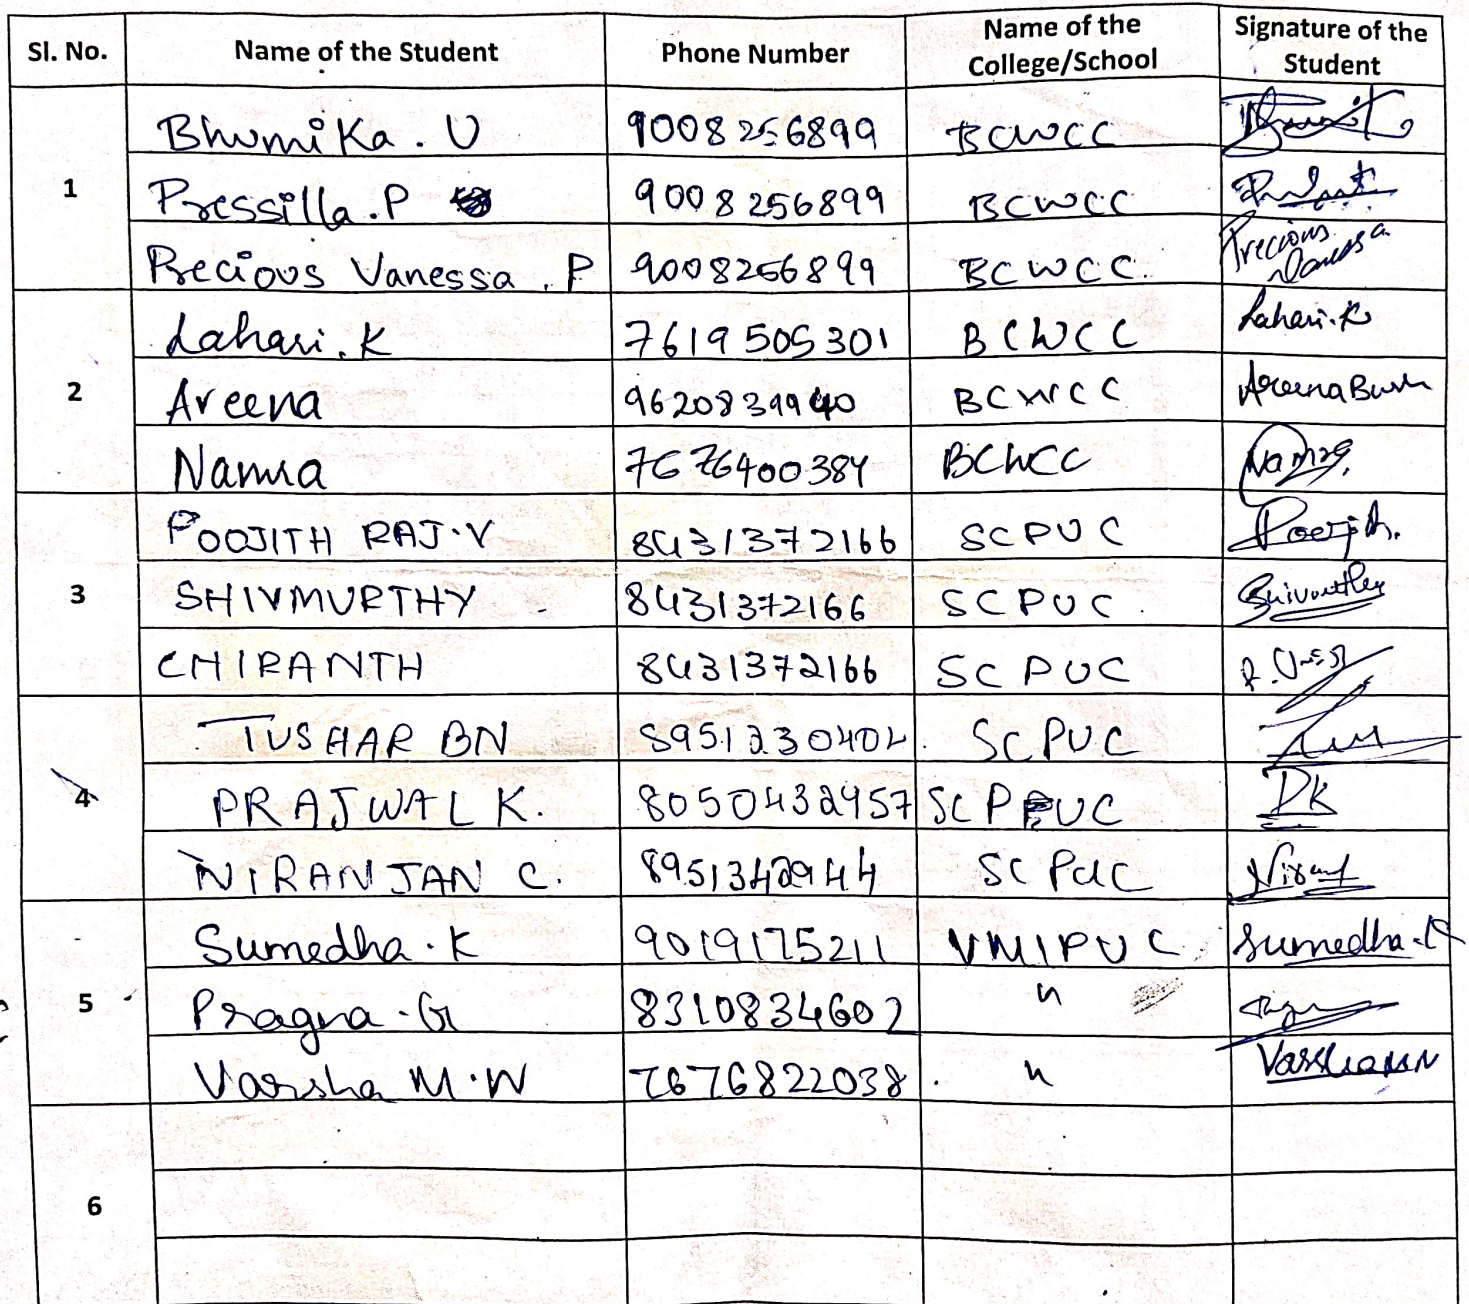 Sl. No. Name of the Student Phone Number Name of the College/School Signature of the Student
1 Bhumika. U 9008256899 BCWCC
Pressilla. P 9008256899 BCWCC
Precious Vanessa. P 9008256899 BCWCC Precious Vanessa
2 Lahari. K 7619505301 BCWCC Lahari. K
Areena 9620839940 BCWCC Areena
Namra 7676400384 BCWCC Namra
3 POOJITH RAJ. V 8431372166 SCPUC Poojith.
SHIVMURTHY 8431372166 SCPUC
CHIRANTH 8431372166 SCPUC
4 TUSHAR BN 8951230402 SCPUC
PRAJWAL K. 8050432957 SCPUC PK
NIRANJAN C. 8951342944 SCPUC
5 Sumedha. K 9019175211 VMIPUC Sumedha. K
Pragna. G 8310834602 "
Varsha M.N 7676822038 " Varsha MN
6